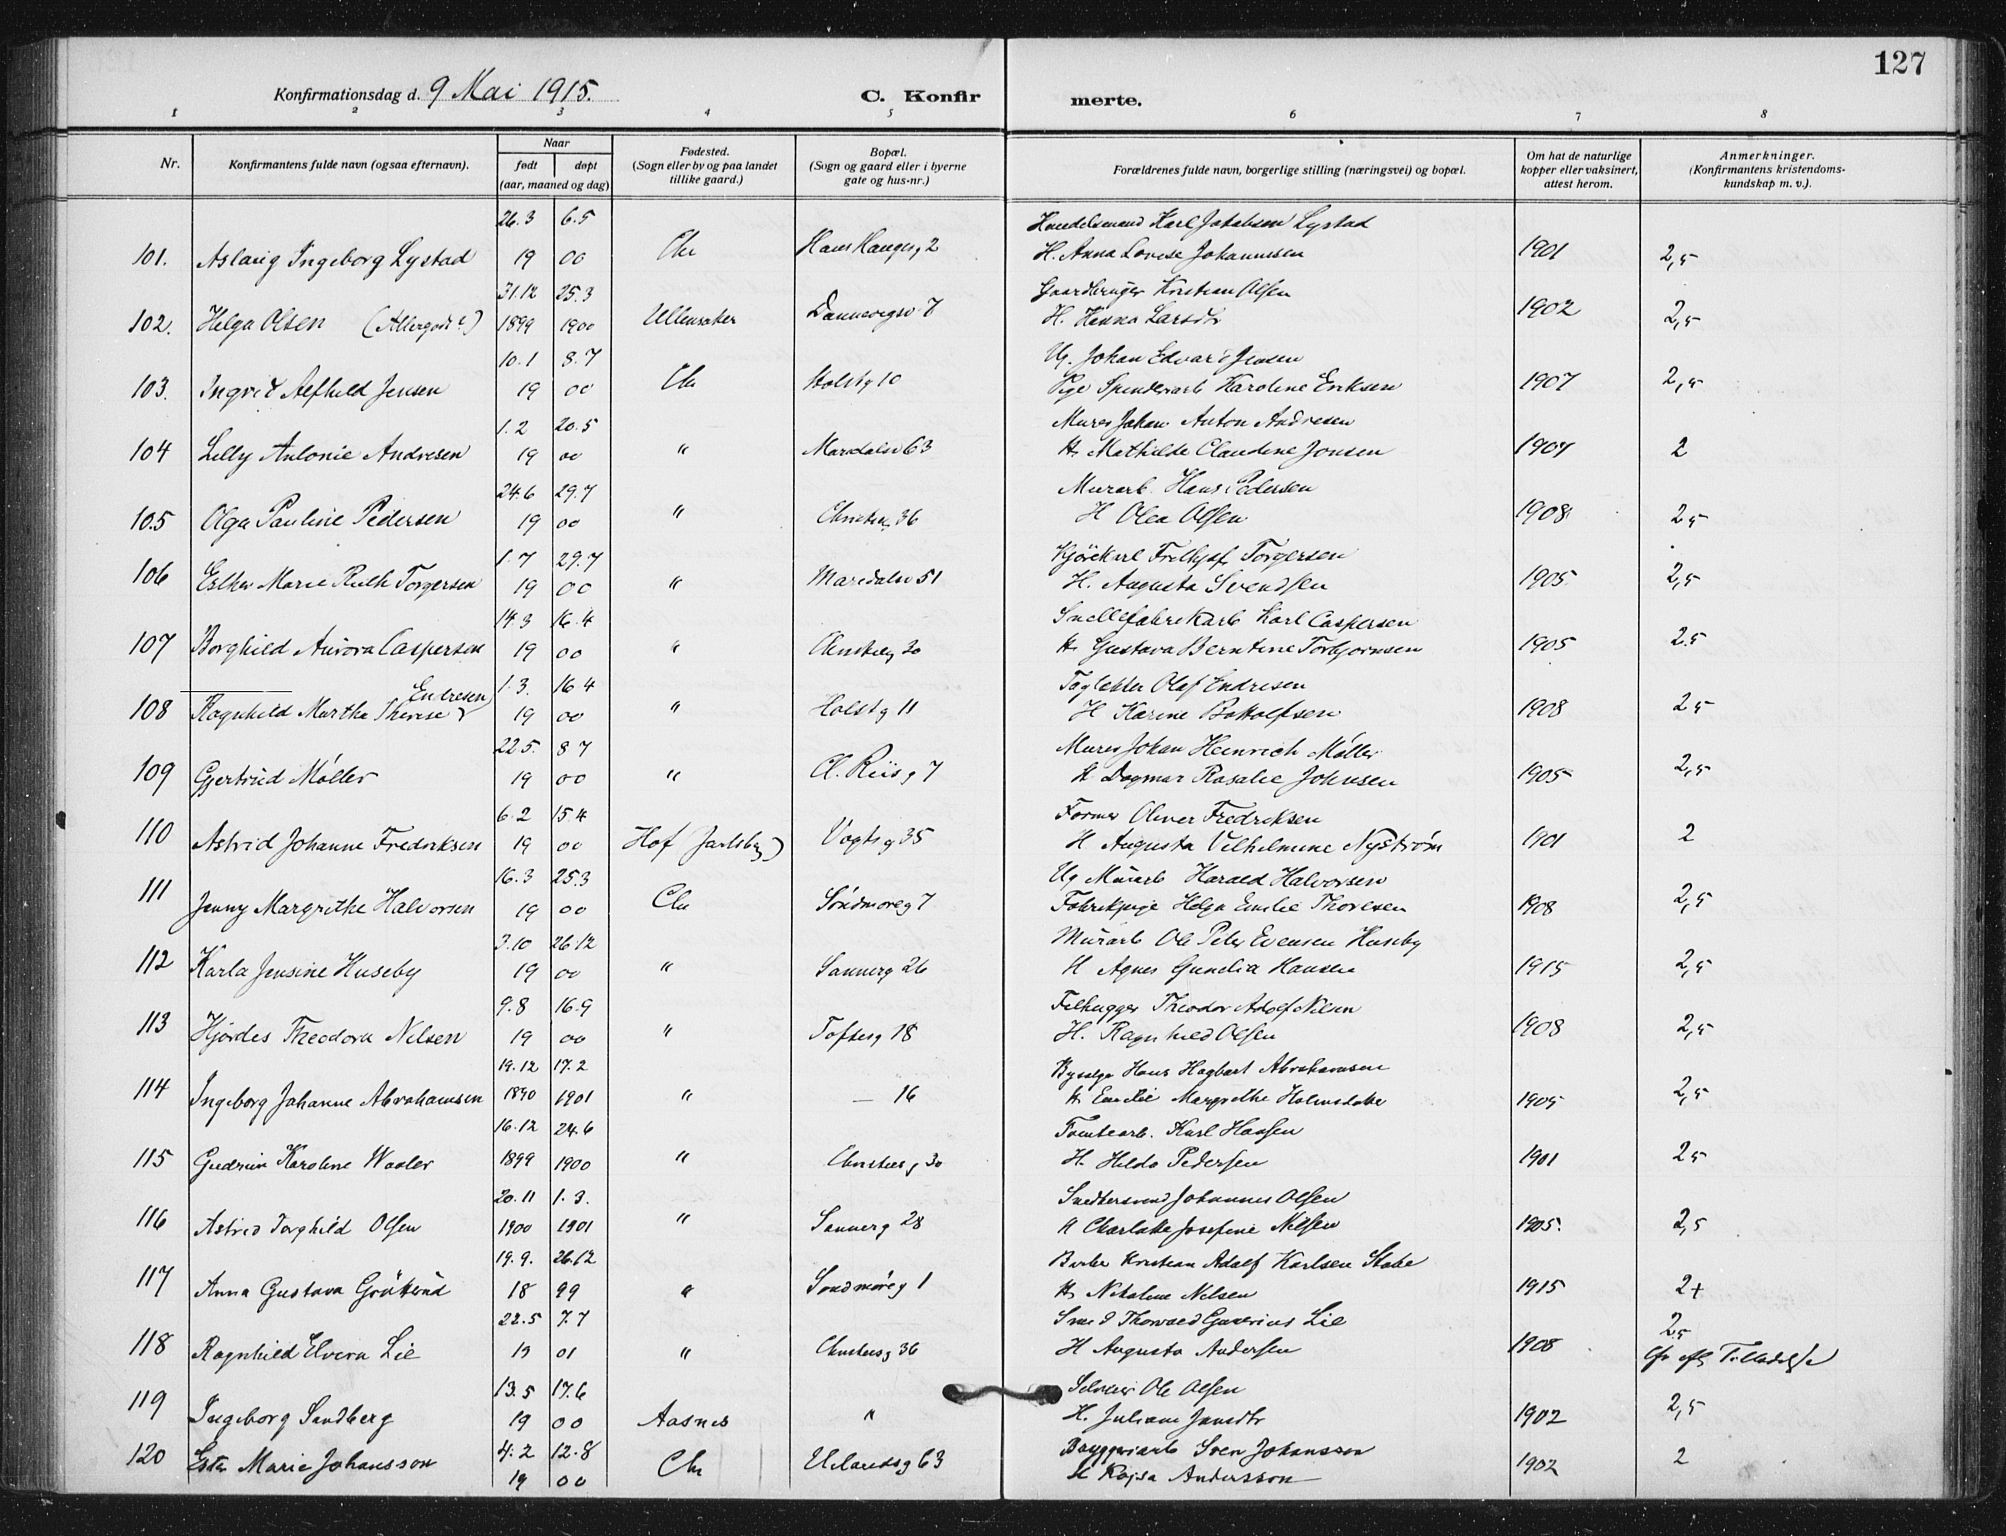 127
Konfirmationsdag d. 9 Mai 1915.
C. Konfir merte.
1 2 3 4 5 6 7 8
Nr.
Konfirmantens fulde navn (ogsaa efternavn).
Naar
født døpt
(aar, maaned og dag)
Fødested.
(Sogn eller by og paa landet
tillike gaard.)
Bopæl.
(Sogn og gaard eller i byerne
gate og hus-nr.)
Forældrenes fulde navn, borgerlige stilling (næringsvei) og bopæl.
Om hat de naturlige
kopper eller vaksinert,
attest herom.
Anmerkninger.
(Konfirmantens kristendoms-
kundskap m. v.).
26.3 6.5 Handelsmand Karl Jakobsen Lystad
101. Aslaug Ingeborg Lystad 19 00 Chr Hans Haugesg 2 H. Anna Lovise Johannesen 1901 2,5
31.12 25.3 Gaardbruger Kristian Olsen
102. Helga Olsen 1899 1900 Ullensaker Dannevigsv 7 H. Hanna Larsdtr 1902 2,5
10.1 8.7 Ug. Johan Edvard Jensen
103. Ingrid Alfhild Jensen 19 00 Chr Holstg 10 Pige Spinderarb Karoline Eriksen 1907 2,5
1.2 20.5 Murer Johan Anton Andresen
104 Lilly Antonie Andresen 19 00 " Maridalsv 63 H. Mathilde Claudine Jonsen 1907 2
24.6 29.7 Murarb. Hans Pedersen
105 Olga Pauline Pedersen 19 00 " Christiesg 36 H Olea Olsen 1908 25
1.7 29.7 Kjørekarl Fridtjof Torgersen
106 Esther Marie Ruth Torgersen 19 00 " Maridalsv 51 H. Augusta Svendsen 1905 2,5
14.3 16.4 Snellefabrikarb Karl Caspersen
107 Borghild Aurora Caspersen 19 00 " Christiesg 30 H. Gustava Berntine Torbjørnsen 1905 2.5
Endresen 1.3. 16.4 Taglekter Olaf Endresen
108 Ragnhild Martha Therese 19 00 " Holstg 11 H Karine Bottolfsen 1908 25
22.5. 8 7 Murer Johan Heinrich Møller
109 Gjertrud Møller 19 00 " Cl. Riisg 7 H Dagmar Rosalie Johnsen 1905 2,5
6.2 15 4 Former Oliver Fredriksen
110 Astrid Johanne Fredriksen 19 00 Hof Jarlsberg) Vogtsg 35 H Augusta Vilhelmine Nystrøm 1901 2
16.3 25.3 Ug Murarb Harald Halvorsen
111 Jenny Margrethe Halvorsen 19 00 Chr Søndmøreg 7 Fabrikpige Helga Emilie Thoresen 1908 2,5
3.10 26.12 Murarb Ole Peter Evensen Huseby
112 Karla Jensine Huseby 19 00 " Sannerg 26 H Agnes Gunelia Hansen 1915 2,5
9.8 16.9 Filhugger Theodor Adolf Nilsen
113 Hjørdes Theodora Nilsen 19 00 " Toftesg 18 H. Ragnhild Olsen 1908 2,5
19.12 17.2 Hans Hagbart Abrahamsen
114 Ingeborg Johanne Abrahamsen 1890 1901 " — 16 H Emilie Margrethe 1905 2,5
16.12 24.6 Tomtearb. Karl Hansen
115 Gudrun Karoline Waaler 1899 1900 " Christiesg 30 H. Hilda Pedersen 1901 25
20.11 1.3. Snedkersvend Johannes Olsen
116 Astrid Torghild Olsen 1900 1901 " Sannerg 28 H Charlotte Josefine Nilsen 1905. 2,5
19.9. 26.12 Kristian Adolf Karlsen
117 Anna Gustava 18 99 " Søndmøreg 1 H. Nikoline Nilsen 1915 2+
22.5 7.7 Smed Thorvald Guverius Lie 25
118 Ragnhild Elvera Lie 19 01 " Christiesg 36 H Augusta Andersen 1908 Tilladelse
13.5 17.6 Ole Olsen
119 Ingeborg Sandberg 19 00 Aasnes " H. Juliane Jansdtr 1902 2,5
4.2 12.8 Bryggeriarb Sven Johansson
120 Ester Marie Johansson 19 00 Chr Uelandsg 63 H Kajsa Andersson 1902 2